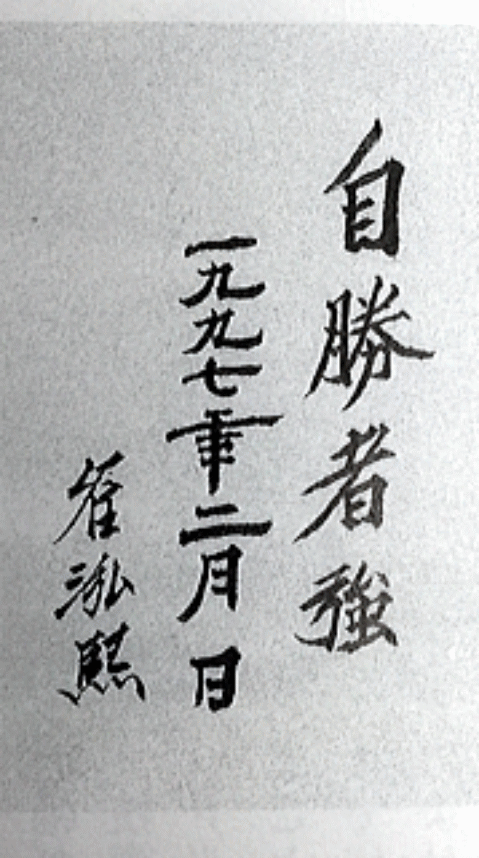 自勝者強
一九九七年二月 日
泓熙